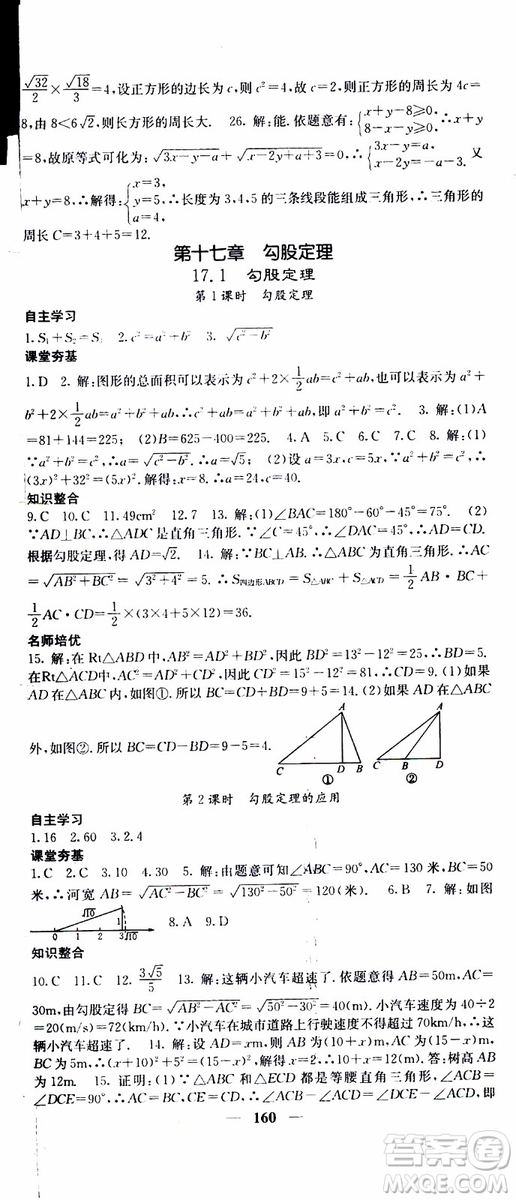 √32/2 × √18/3 = 4，设正方形的边长为 c，则 c²＝4，故正方形的周长为
8，由 8＜6√2，则长方形的周长大． 26．解：能．依题意有：{x＋y－8≥0， 8－x－y≥0， ∴x＋y
＝8，故原等式可化为：√(3x－y－a)＋√(x－2y＋a＋3)＝0，∴{3x－y＝a， x－2y＋a＋3＝0． 又
x＋y＝8，∴{x＝3， y＝5， a＝4． ∴长度为 3，4，5 的三条线段能组成三角形，∴三角形的
周长 C＝3＋4＋5＝12．
第十七章　勾股定理
17.1　勾股定理
第 1 课时　勾股定理
自主学习
1．S₁＋S₂＝S₃　2．a²＋b²　3．√(c²－b²)
课堂夯基
1．D　2．解：图形的总面积可以表示为 c²＋2×1/2ab＝c²＋ab，也可以表示为 a²＋
b²＋2×1/2ab＝a²＋b²＋ab，∴c²＋ab＝a²＋b²＋ab，∴a²＋b²＝c²．　3．解：(1)A
＝81＋144＝225；(2)B＝625－400＝225．　4．A　5．A　6．C　7．5　8．解：(1)
∵a²＋b²＝c²，∴a＝√(c²－b²)，∴a＝√5；(2)设 a＝3x，c＝5x，∵a²＋b²＝c²，∴
(3x)²＋32²＝(5x)²，解得 x＝8，∴a＝24，c＝40．
知识整合
9．C　10．C　11．49cm²　12．7　13．解：(1)∠BAC＝180°－60°－45°＝75°．(2)
∵AD⊥BC，∴△ADC 是直角三角形，∵∠C＝45°，∴∠DAC＝45°，∴AD＝CD．
根据勾股定理，得 AD＝√2．　14．解：∵∠ABC＝90°，∴△ABC 是直角三角形，∴AC
＝√(AB²＋BC²)＝√(3²＋4²)＝5．∴S四边形ABCD＝S△ABC＋S△ACD＝1/2AB·BC＋
1/2AC·CD＝1/2×(3×4＋5×12)＝36．
名师培优
15．解：在Rt△ABD 中，AB²＝AD²＋BD²，因此 BD²＝13²－12²＝25，所以 BD＝5．
在Rt△ADC 中，AC²＝AD²＋CD²，因此 CD²＝15²－12²＝81，所以 CD＝9．(1)如果
AD 在△ABC 内，如图①．所以 BC＝BD＋CD＝9＋5＝14．(2)如果 AD 在△ABC
外，如图②．所以 BC＝CD－BD＝9－5＝4．
A　C　D　B　①　A　C　B　D　②
第 2 课时　勾股定理的应用
自主学习
1．16　2．60　3．2.4
课堂夯基
1．C　2．C　3．10　4．30　5．解：由题意可知∠ABC＝90°，AC＝130米，BC＝50
米，∴河宽 AB＝√(AC²－BC²)＝√(130²－50²)＝120(米)．　6．B　7．解：如图
√10　0　1　2　3　√10　8．A　9．D
知识整合
10．C　11．C　12．3√5/5　13．解：这辆小汽车超速了．∵AB＝50m，AC＝
30m，由勾股定理得 BC＝√(AB²－AC²)＝√(50²－30²)＝40(m)．小汽车速度为 40÷2
＝20(m/s)＝72(km/h)．∵小汽车在城市道路上行驶速度不得超过 70km/h，∴这
辆小汽车超速了．　14．解：设 AD＝xm，则由题意可得 BD＋AB＝10＋x，AC＝
15－x．∴(x＋10)²＋5²＝(15－x)²，解得 x＝2，∴AB＝10＋2＝12．答：树高 AB
为 12m．　15．证明：(1)∵△ABC 和△ECD 都是等腰直角三角形，∠ACB＝
∠DCE＝90°，∴AC＝BC，CD＝CE．∵∠ACE＋∠ACD＝∠DCE＝90°，
160
答案圈
MXQE.COM